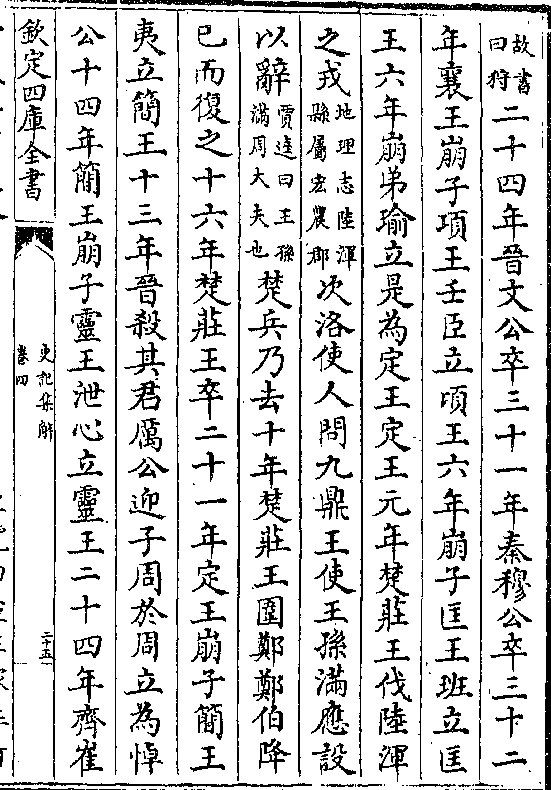 故書
曰狩二十四年晉文公卒三十一年秦穆公卒三十二
年襄王崩子頃王壬臣立項王六年崩子匡王班立匡
王六年崩弟瑜立是為定王定王元年楚莊王伐陸渾
之戎地理志陸渾
縣屬宏農郡次洛使人問九鼎王使王孫滿應設
以辭賈逵曰王孫
滿周大夫也楚兵乃去十年楚莊王圍鄭鄭伯降
已而復之十六年楚莊王卒二十一年定王崩子簡王
夷立簡王十三年晉殺其君厲公迎子周於周立為悼
公十四年簡王崩子靈王泄心立靈王二十四年齊崔
欽定四庫全書
史記集解
卷四
二十五